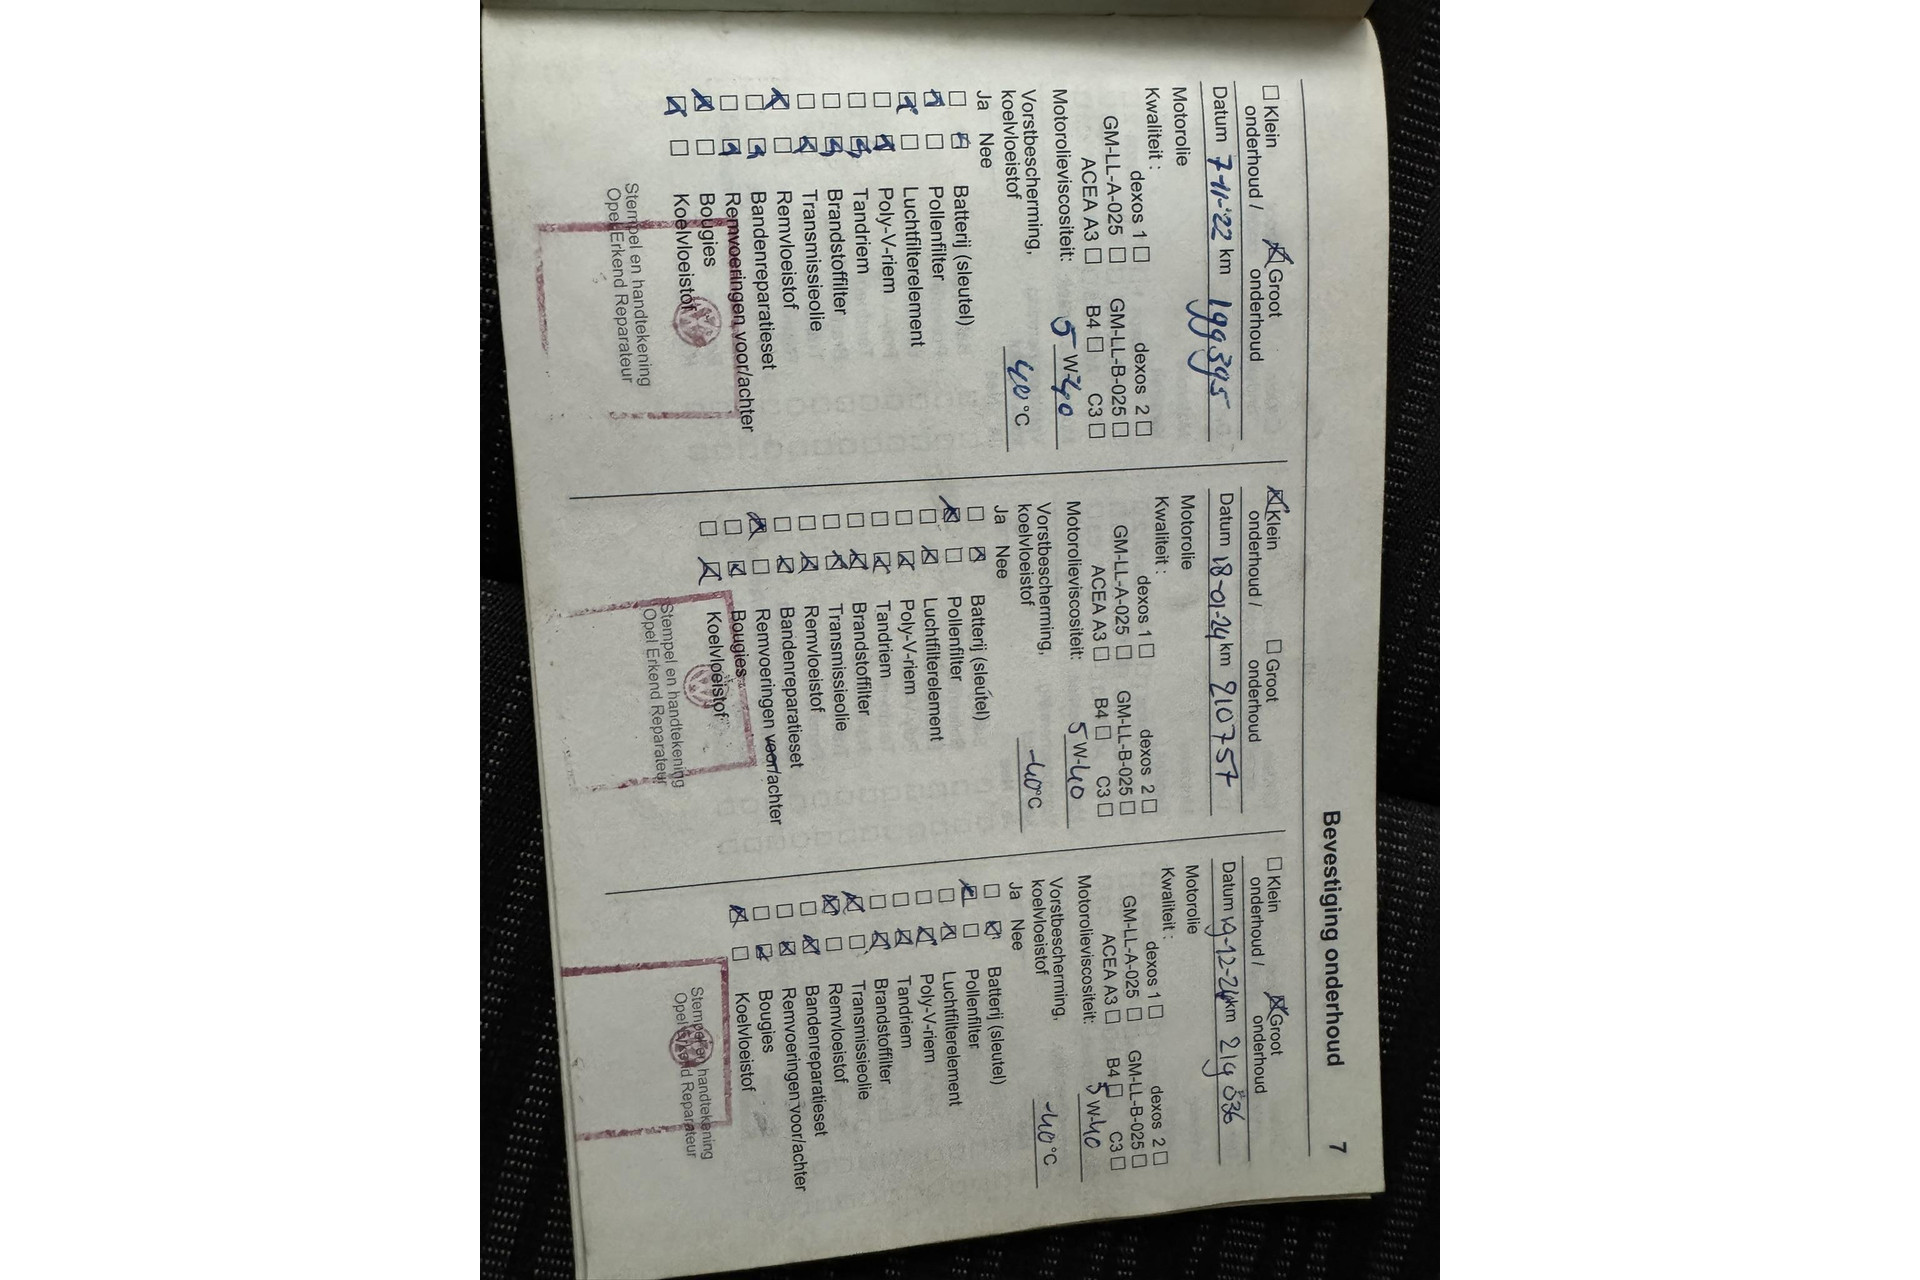 Bevestiging onderhoud 7
☐ Klein onderhoud / ☒ Groot onderhoud
Datum 7-11-'22 km 199395
Motorolie
Kwaliteit : dexos 1 ☐ dexos 2 ☐
GM-LL-A-025 ☐ GM-LL-B-025 ☐
ACEA A3 ☐ B4 ☐ C3 ☐
Motorolieviscositeit: 5 W-40
Vorstbescherming,
koelvloeistof 40 °C
Ja Nee
☐ ☒ Batterij (sleutel)
☒ ☐ Pollenfilter
☒ ☐ Luchtfilterelement
☐ ☒ Poly-V-riem
☐ ☒ Tandriem
☐ ☒ Brandstoffilter
☐ ☒ Transmissieolie
☒ ☐ Remvloeistof
☐ ☒ Bandenreparatieset
☐ ☒ Remvoeringen voor/achter
☒ ☐ Bougies
☒ ☐ Koelvloeistof
Stempel en handtekening
Opel Erkend Reparateur
☒ Klein onderhoud / ☐ Groot onderhoud
Datum 18-01-24 km 210757
Motorolie
Kwaliteit : dexos 1 ☐ dexos 2 ☐
GM-LL-A-025 ☐ GM-LL-B-025 ☐
ACEA A3 ☐ B4 ☐ C3 ☐
Motorolieviscositeit: 5 W-40
Vorstbescherming,
koelvloeistof -40 °C
Ja Nee
☐ ☒ Batterij (sleutel)
☒ ☐ Pollenfilter
☐ ☒ Luchtfilterelement
☐ ☒ Poly-V-riem
☐ ☒ Tandriem
☐ ☒ Brandstoffilter
☐ ☒ Transmissieolie
☐ ☒ Remvloeistof
☐ ☒ Bandenreparatieset
☒ ☐ Remvoeringen voor/achter
☐ ☒ Bougies
☐ ☒ Koelvloeistof
Stempel en handtekening
Opel Erkend Reparateur
☐ Klein onderhoud / ☒ Groot onderhoud
Datum 19-12-24 km 219836
Motorolie
Kwaliteit : dexos 1 ☐ dexos 2 ☐
GM-LL-A-025 ☐ GM-LL-B-025 ☐
ACEA A3 ☐ B4 ☐ C3 ☐
Motorolieviscositeit: 5 W-40
Vorstbescherming,
koelvloeistof -40 °C
Ja Nee
☐ ☒ Batterij (sleutel)
☒ ☐ Pollenfilter
☐ ☒ Luchtfilterelement
☐ ☒ Poly-V-riem
☐ ☒ Tandriem
☐ ☒ Brandstoffilter
☒ ☐ Transmissieolie
☒ ☐ Remvloeistof
☐ ☒ Bandenreparatieset
☐ ☒ Remvoeringen voor/achter
☐ ☒ Bougies
☒ ☐ Koelvloeistof
Stempel en handtekening
Opel Erkend Reparateur